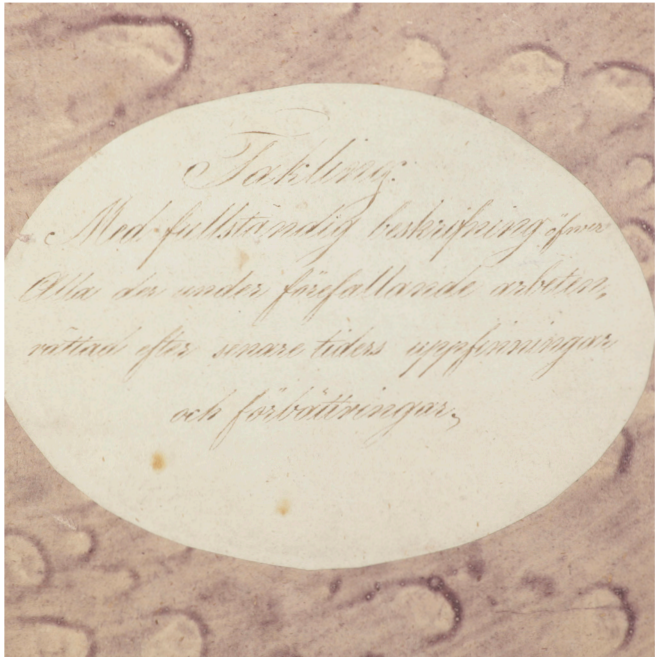 Takling.
Med fullständig beskrifning öfwer
Alla der under förefallande arbeten,
rättad efter senare tiders uppfinningar
och förbättringar,